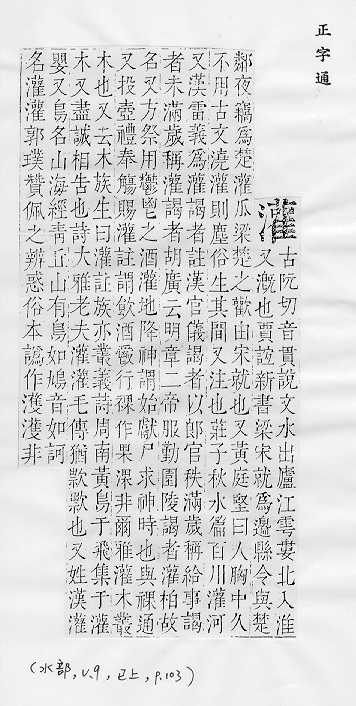 正字通
灌 古阮切音貫說文水出廬江雩婁北入淮
又漑也賈誼新書梁宋就爲邊縣令與楚
鄰夜竊爲楚灌瓜梁楚之歡由宋就也又黃庭堅曰人胸中久
不用古文澆灌則塵俗生其間又注也莊子秋水篇百川灌河
又漢雷義爲灌謁者註漢官儀謁者以郎官秩滿歲稱給事謁
者未滿歲稱灌謁者胡廣云明章二帝服勤園陵謁者灌柏故
名又方祭用鬱鬯之酒灌地降神謂始獻尸求神時也與祼通
又投壺禮奉觴賜灌註謂飲酒行祼作果淉非爾雅灌木叢
木也又云木族生曰灌註族亦叢義詩周南黃鳥于飛集于灌
木又盡誠相告也詩大雅老夫灌灌毛傳猶款款也又姓漢灌
嬰又鳥名山海經靑丘山有鳥如鳩音如訶
名灌灌郭璞贊佩之辨惑俗本譌作濩濩非
(水部, v.9, 巳上, p.103)